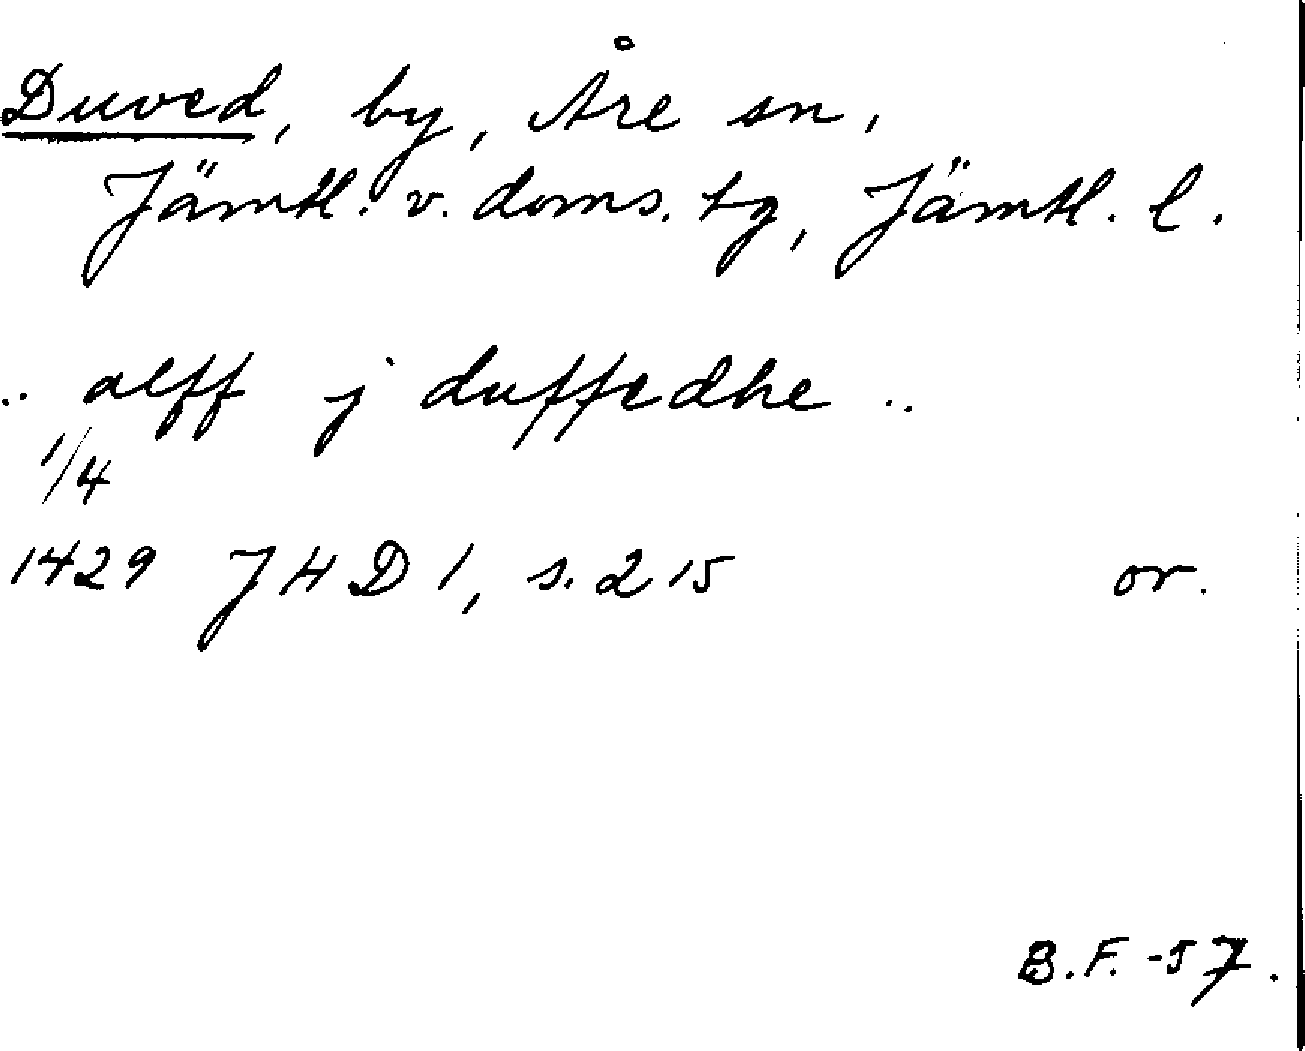 Duved, by, Åre sn,
Jämtl. v. doms. tg, Jämtl. l.
.. alff j duffedhe ..
1/4
1429 JHD 1, s. 215 or.
B.F. -57.